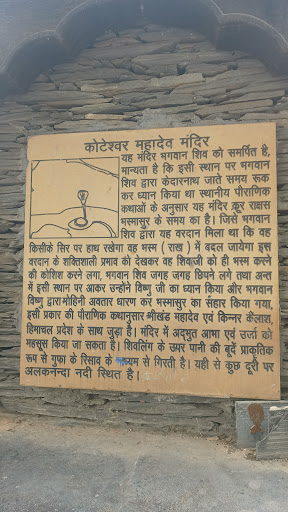 कोटेश्वर महादेव मंदिर
यह मंदिर भगवान शिव को समर्पित है,
मान्यता है कि इसी स्थान पर भगवान
शिव द्वारा केदारनाथ जाते समय रूक
कर ध्यान किया था स्थानीय पौराणिक
कथाओं के अनुसार यह मंदिर क्रूर राक्षस
भस्मासुर के समय का है। जिसे भगवान
शिव द्वारा यह वरदान मिला था कि वह
किसीके सिर पर हाथ रखेगा वह भस्म ( राख ) में बदल जायेगा इस
वरदान के शक्तिशाली प्रभाव को देखकर वह शिवजी को ही भस्म करने
की कोशिश करने लगा, भगवान शिव जगह जगह छिपने लगे तथा अन्त
में इसी स्थान पर आकर उन्होंने विष्णु जी का ध्यान किया और भगवान
विष्णु द्वारा मोहिनी अवतार धारण कर भस्मासुर का संहार किया गया,
इसी प्रकार की पौराणिक कथानुसार श्रीखंड महादेव एवं किन्नर कैलाश,
हिमाचल प्रदेश के साथ जुड़ा है। मंदिर में अद्भुत आभा एवं उर्जा को
महसूस किया जा सकता है। शिवलिंग के उपर पानी की बूंदें प्राकृतिक
रूप से गुफा के रिसाव के माध्यम से गिरती है। यही से कुछ दूरी पर
अलकनन्दा नदी स्थित है।